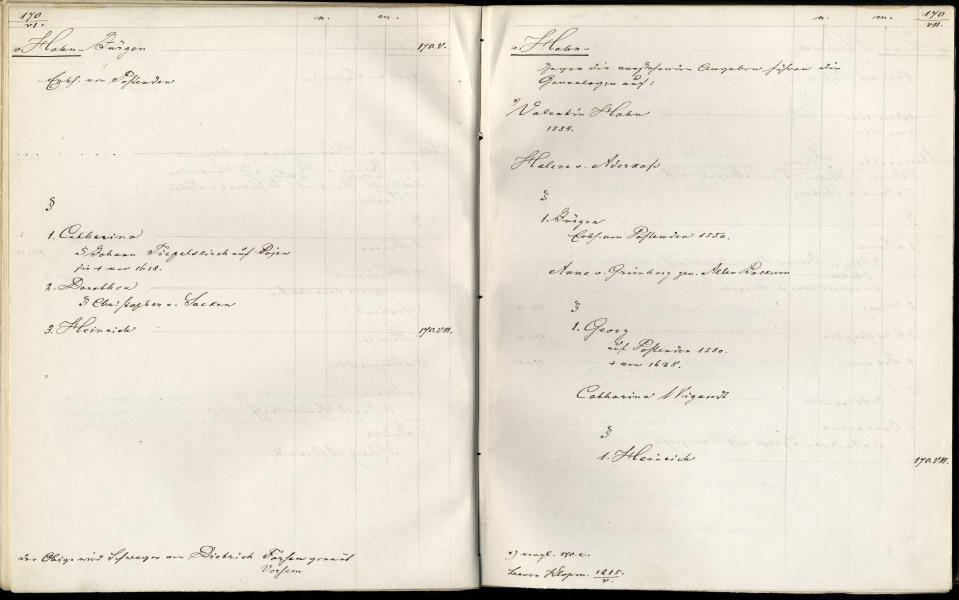 170
VI.
n.
m.
v. Hahn - Jürgen
170.V.
Erbh. von Postenden
§
1. Catharina
§ Johann Tiepelskirch auf Bojen
sie † vor 1618.
2. Dorothea
§ Christopher v. Sacken
3. Heinrich
170.VIII.
der Obige wird Schwager von Dietrich Forssen genannt
Vorssem
n.
m.
170
VII.
v. Hahn -
Gegen die vorstehenden Angaben führen die
Genealogen auf:
*)
Valentin Hahn
1554.
Helene v. Aderkass
§
1. Jürgen
Erbh. von Postenden 1550.
Anna v. Grünberg gen. Alten Boskum
§
1. Georg
auf Postenden 1580.
† vor 1628.
Catharina Wigandt
§
1. Heinrich
170.VIII.
*) vergl. 170.c.
Klopm. 1215.
V.